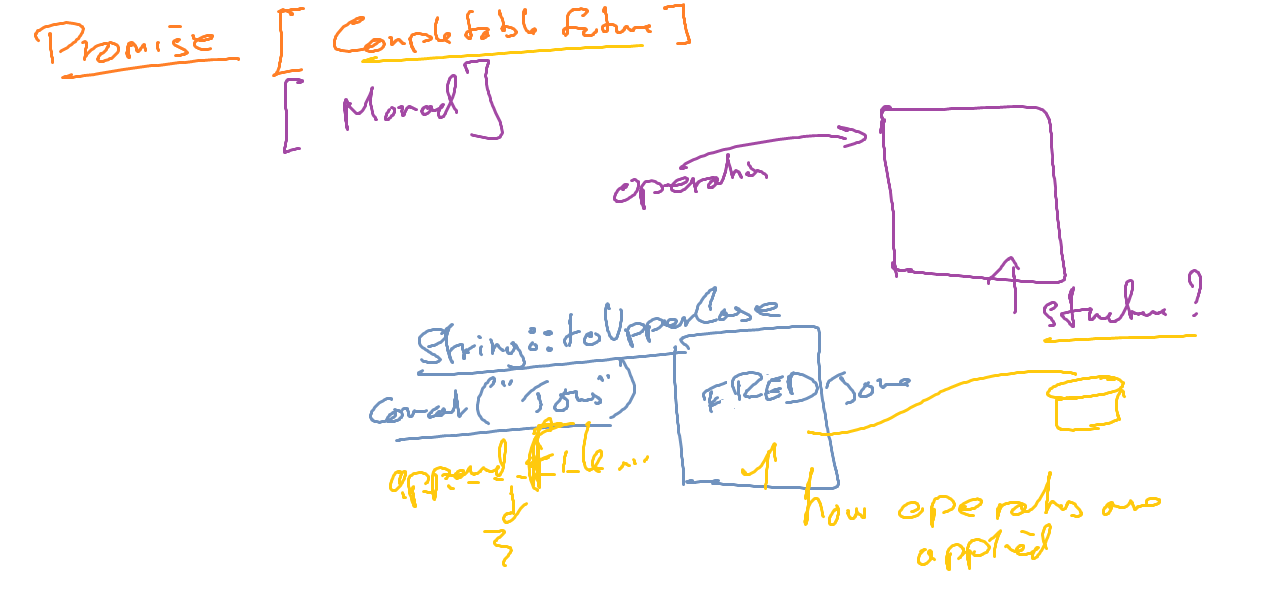 Promise [ Completable Future ]
[ Monad ]
operations
structure ?
String::toUpperCase
Concat("Jones")
FRED Jones
append FILE ...
}
how operations are
applied